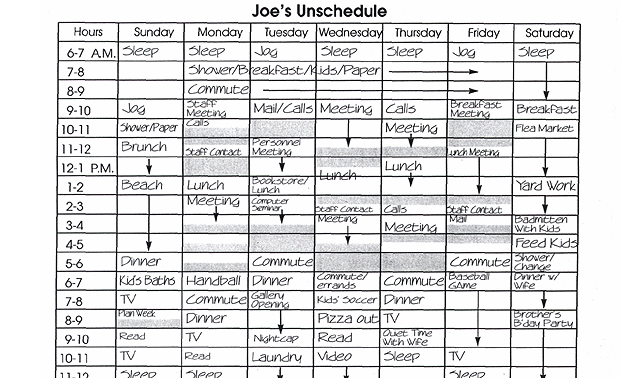 Joe's Unschedule
Hours Sunday Monday Tuesday Wednesday Thursday Friday Saturday
6-7 A.M. Sleep Sleep Jog Sleep Sleep Jog Sleep
7-8 Shower/Breakfast/Kids/Paper
8-9 Commute
9-10 Jog Staff Meeting Mail/Calls Meeting Calls Breakfast Meeting Breakfast
10-11 Shower/Paper Calls Meeting Flea Market
11-12 Brunch Staff Contact Personnel Meeting Lunch Meeting
12-1 P.M. Lunch Lunch
1-2 Beach Lunch Bookstore/Lunch Yard Work
2-3 Meeting Computer Seminar Staff Contact Calls Staff Contact
3-4 Meeting Meeting Mail Badmitten With Kids
4-5 Feed Kids
5-6 Dinner Commute Commute Shower/Change
6-7 Kid's Baths Handball Dinner Commute/errands Commute Baseball GAme Dinner w/ Wife
7-8 TV Commute Gallery Opening Kids' Soccer Dinner
8-9 Plan Week Dinner Pizza out TV Brother's B'day Party
9-10 Read TV Nightcap Read Quiet Time With Wife
10-11 TV Read Laundry Video Sleep TV
11-12 Sleep Sleep Sleep